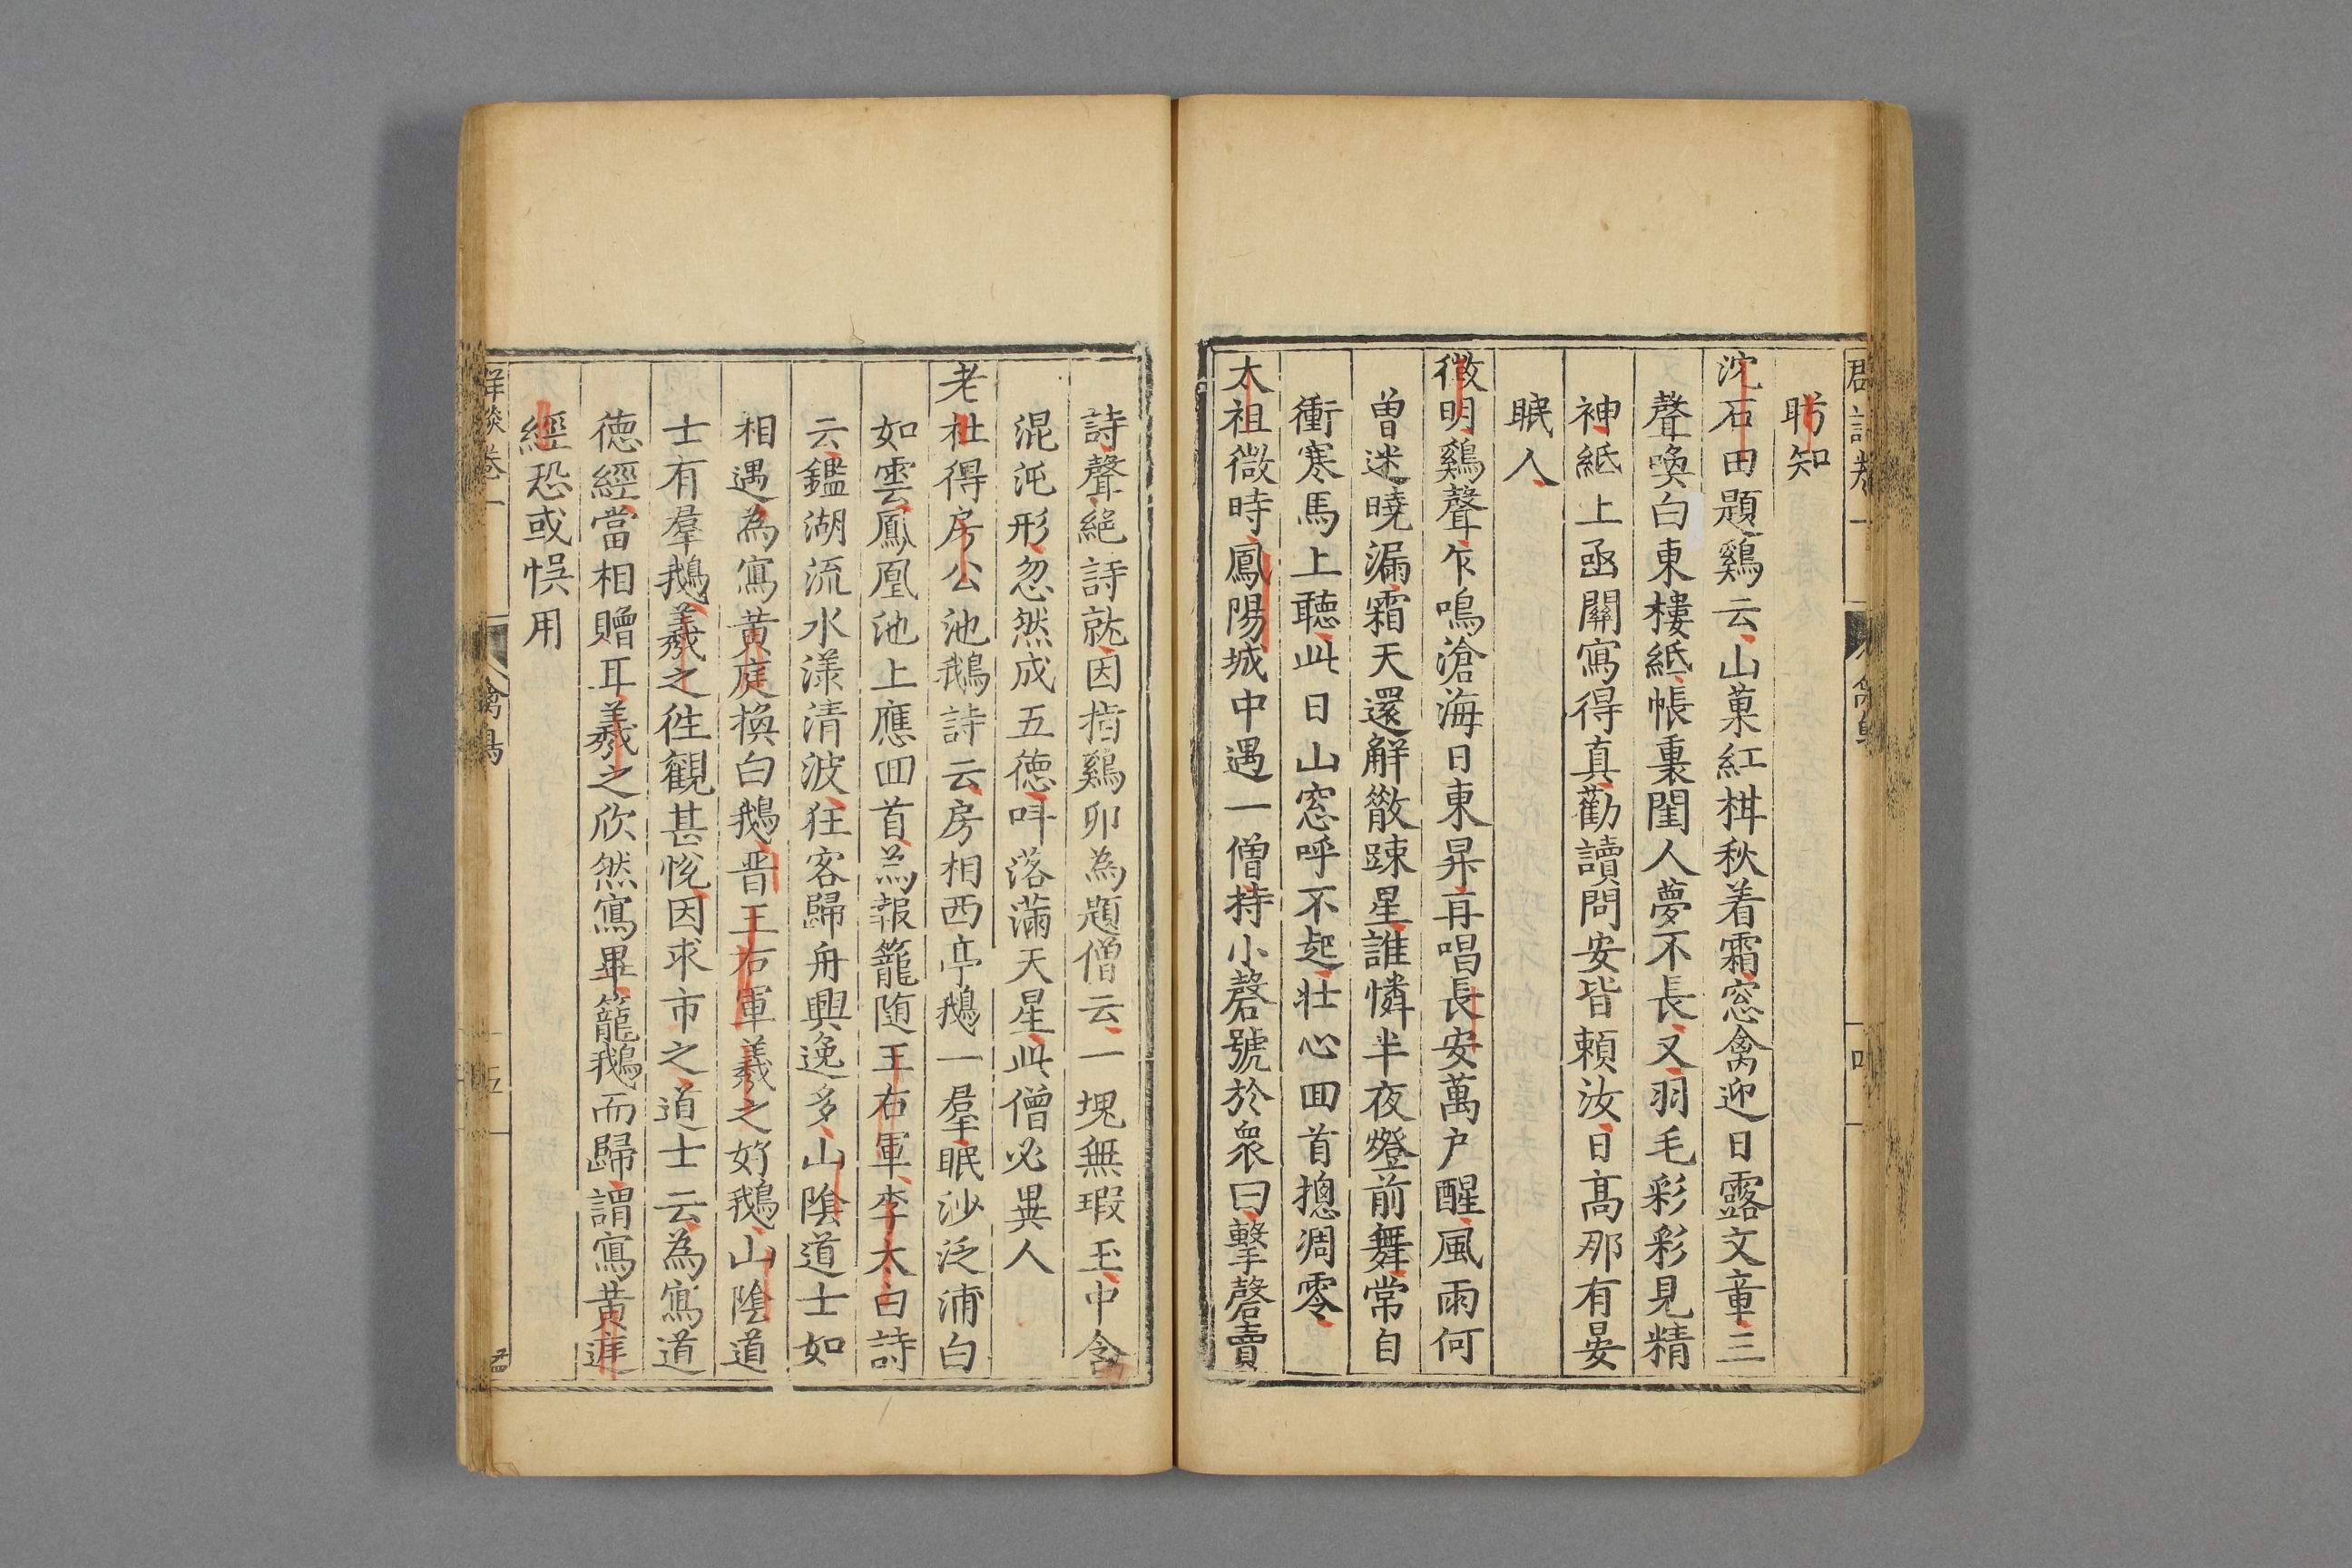 聆知
沈石田題鷄云山菓紅椹秋着霜窓禽迎日露文章三
聲喚白東樓紙帳裏閨人夢不長又羽毛彩彩見精
神紙上函關寫得真勸讀問安皆頼汝日髙那有晏
眠人
徴明鷄聲乍鳴滄海日東昇再唱長安萬户醒風雨何
曽迷曉漏霜天還解散踈星誰憐半夜燈前舞常自
衝寒馬上聴此日山窓呼不起壮心回首摠凋零
太祖微時鳳陽城中遇一僧持小磬號於衆曰擊磬賣
詩聲絶詩就因指鷄卵為題僧云一塊無瑕玉中含
混沌形忽然成五徳呌落滿天星此僧必異人
老杜得房公池鵝詩云房相西亭鵝一羣眠沙泛浦白
如雲鳳凰池上應回首為報籠随王右軍李太白詩
云鑑湖流水漾清波狂客歸舟興逸多山隂道士如
相遇為寫黄庭換白鵝晋王右軍羲之好鵝山隂道
士有羣鵝羲之徃觀甚悦因求市之道士云為寫道
徳經當相贈耳羲之欣然寫畢籠鵝而歸謂寫黄庭
經恐或悞用